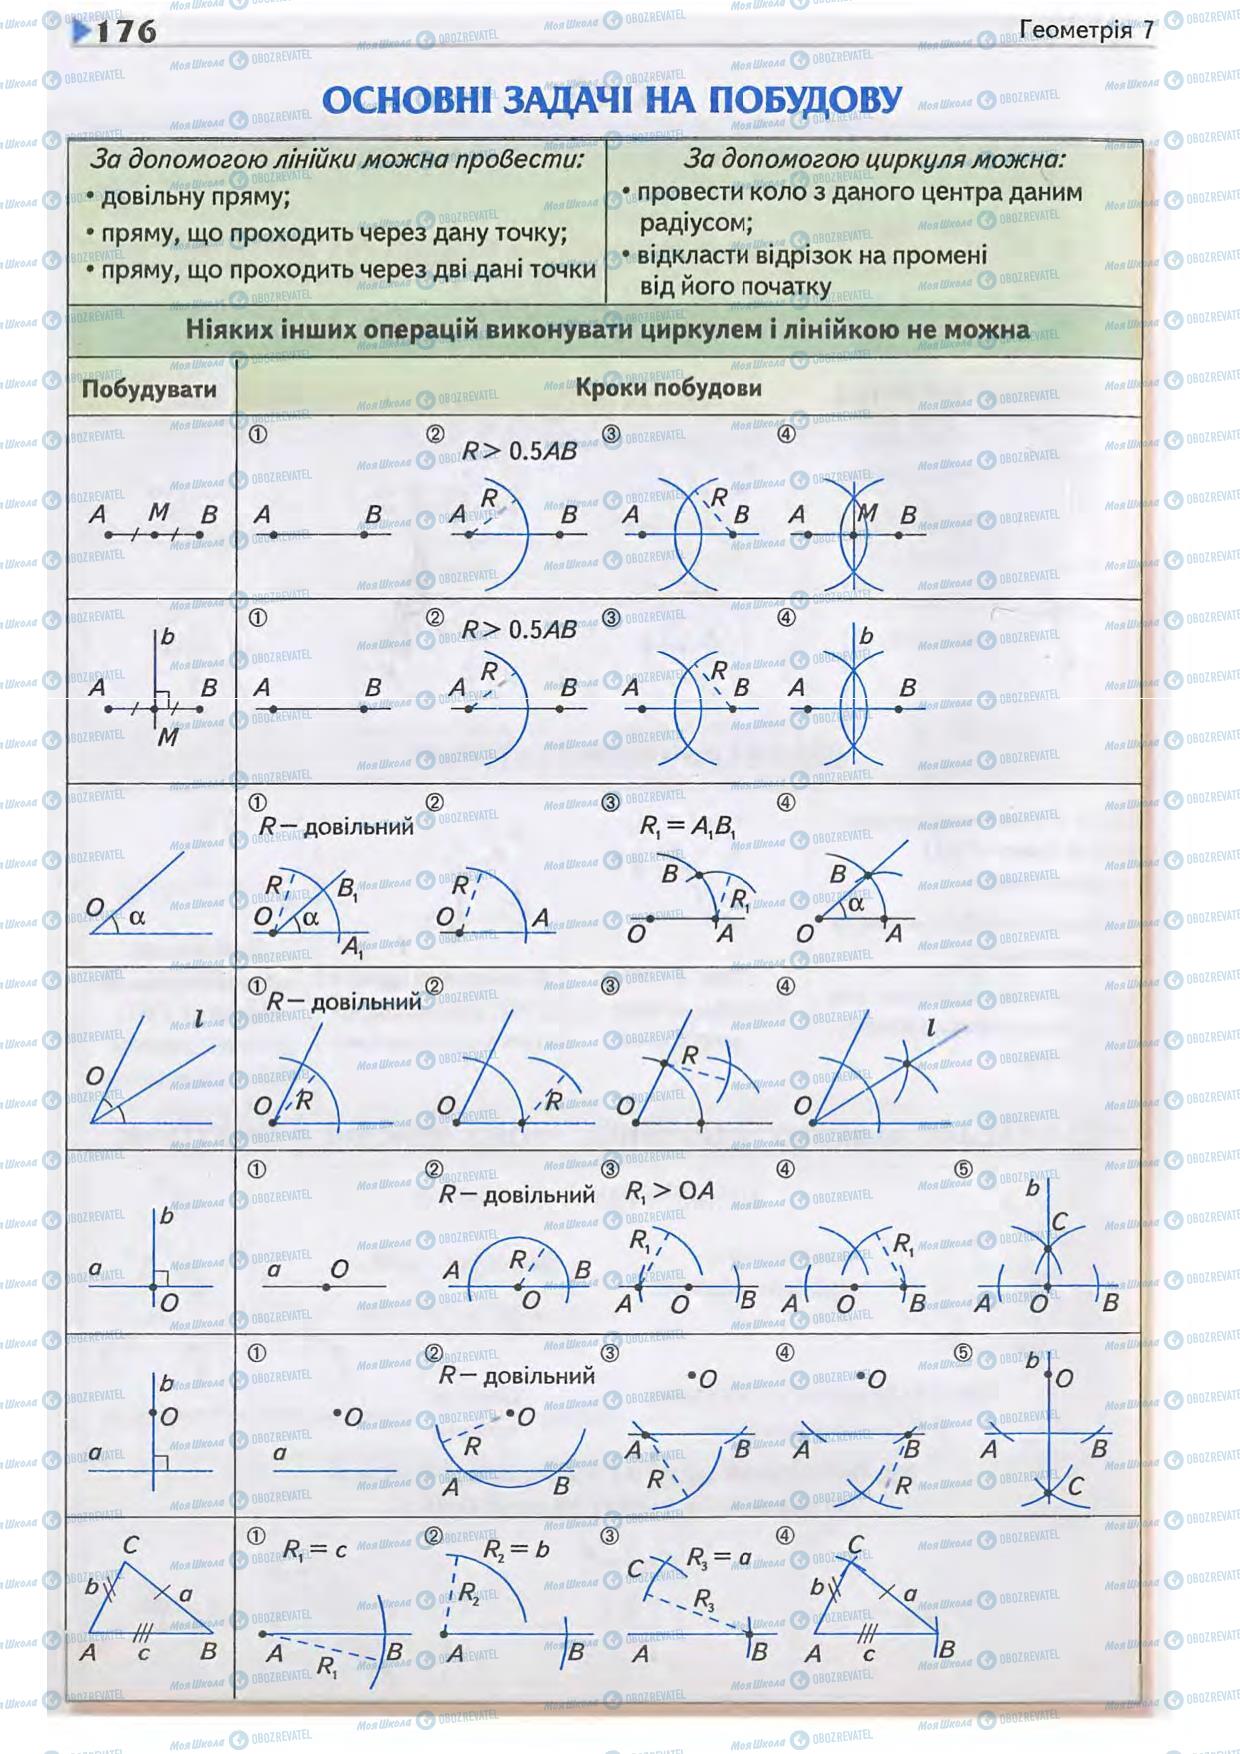 176
Геометрія 7
ОСНОВНІ ЗАДАЧІ НА ПОБУДОВУ
За допомогою лінійки можна провести:
• довільну пряму;
• пряму, що проходить через дану точку;
• пряму, що проходить через дві дані точки
За допомогою циркуля можна:
• провести коло з даного центра даним
радіусом;
• відкласти відрізок на промені
від його початку
Ніяких інших операцій виконувати циркулем і лінійкою не можна
Побудувати
Кроки побудови
A M B
① A B
② R > 0.5AB A R B
③ A R B
④ A M B
b A B M
① A B
② R > 0.5AB A R B
③ A R B
④ b A B
O α
① R — довільний R B₁ O α A₁
② R O A
③ R₁ = A₁B₁ B R₁ O A
④ B α O A
l O
① R — довільний O R
② O R
③ R O
④ l O
b a O
① a O
② R — довільний A R B O
③ R₁ > OA R₁ A O B
④ R₁ A O B
⑤ b C A O B
b O a
① O a
② R — довільний O R A B
③ O A B R
④ O A B R
⑤ b O A B C
C b a A c B
① R₁ = c A R₁ B
② R₂ = b R₂ A B
③ R₃ = a C R₃ A B
④ C b a A c B
Моя Школа OBOZREVATEL